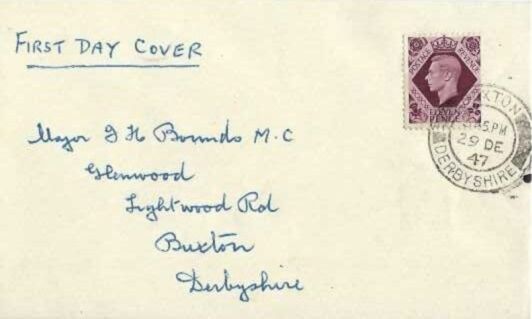 FIRST DAY COVER
POSTAGE REVENUE
ELEVEN PENCE
BUXTON
.45.PM
29 DE
47
DERBYSHIRE
Major G H Bounds M.C
Glenwood
Lightwood Rd
Buxton
Derbyshire